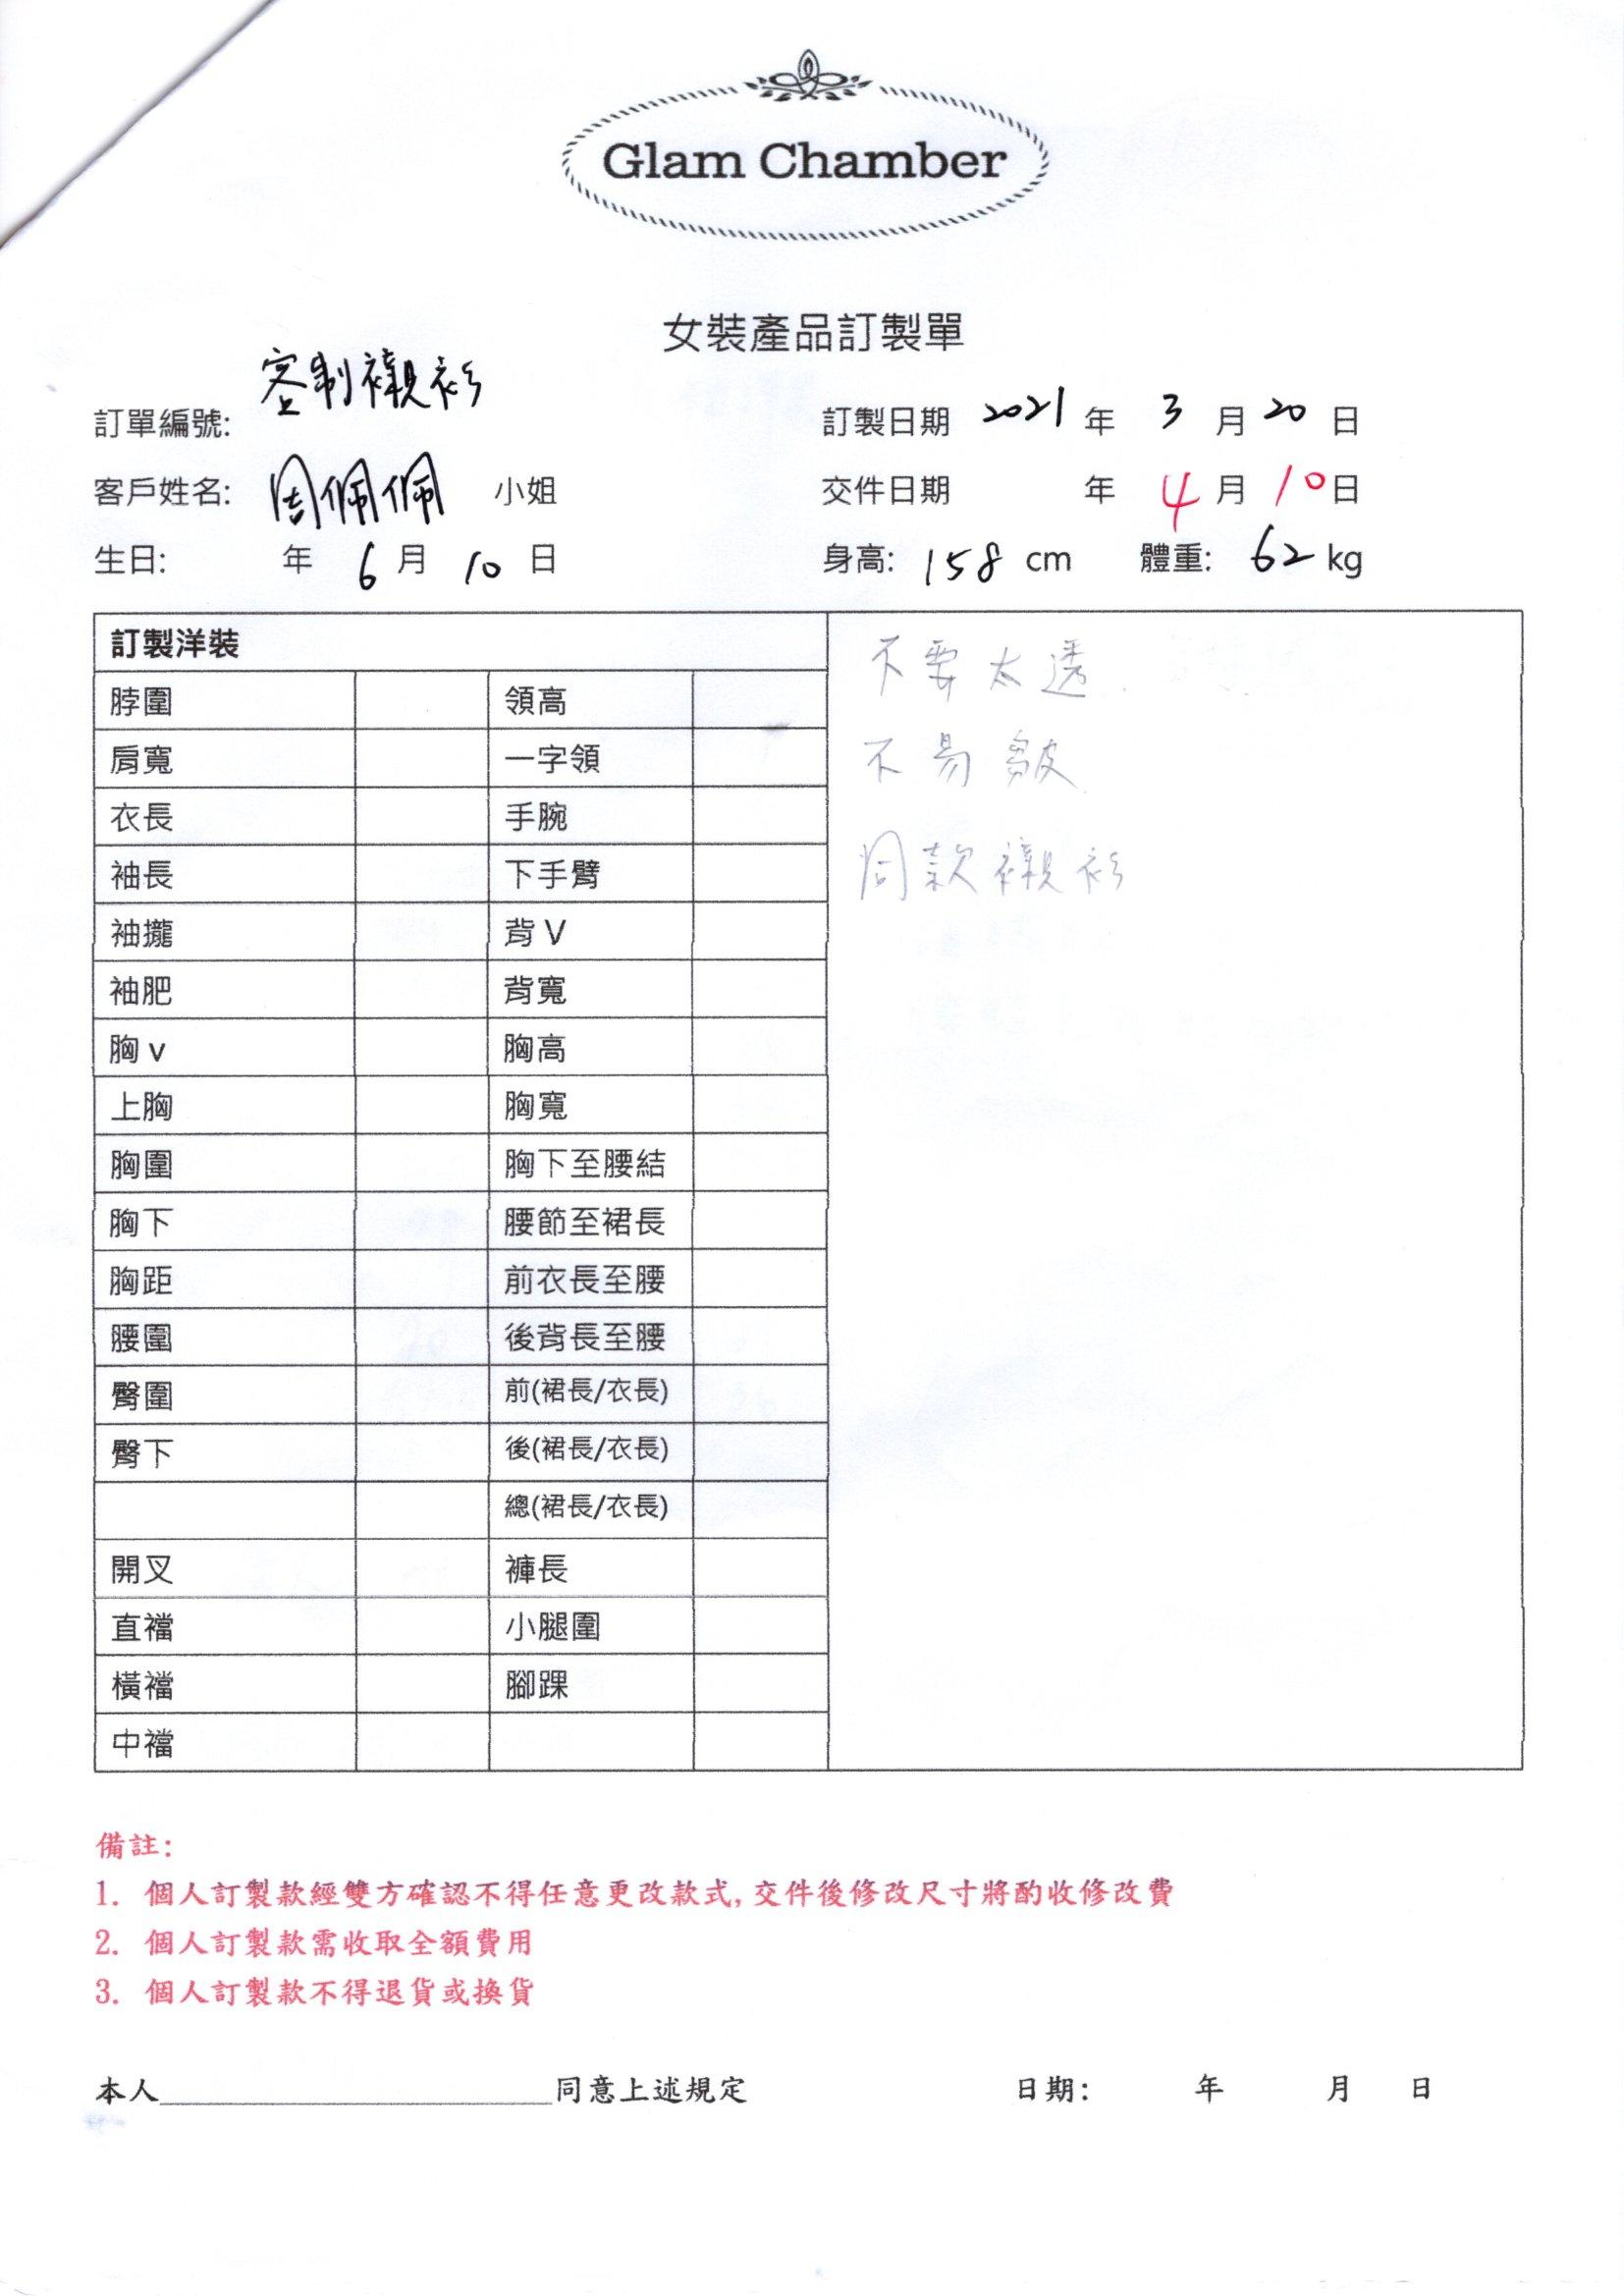 Glam Chamber
女裝產品訂製單
訂單編號: 客制襯衫 訂製日期 2021 年 3 月 20 日
客戶姓名: 周佩佩 小姐 交件日期 年 4 月 10 日
生日: 年 6 月 10 日 身高: 158 cm 體重: 62 kg
訂製洋裝
脖圍 領高
肩寬 一字領
衣長 手腕
袖長 下手臂
袖攏 背 V
袖肥 背寬
胸 v 胸高
上胸 胸寬
胸圍 胸下至腰結
胸下 腰節至裙長
胸距 前衣長至腰
腰圍 後背長至腰
臀圍 前(裙長/衣長)
臀下 後(裙長/衣長)
總(裙長/衣長)
開叉 褲長
直襠 小腿圍
橫襠 腳踝
中襠
不要太透
不易皺
同款襯衫
備註:
1. 個人訂製款經雙方確認不得任意更改款式, 交件後修改尺寸將酌收修改費
2. 個人訂製款需收取全額費用
3. 個人訂製款不得退貨或換貨
本人 同意上述規定 日期: 年 月 日